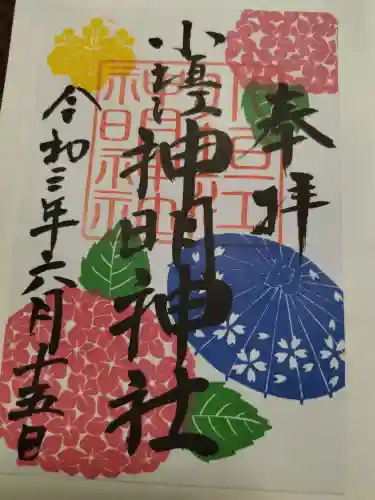 奉拝
小垣江
神明神社
令和三年六月十五日